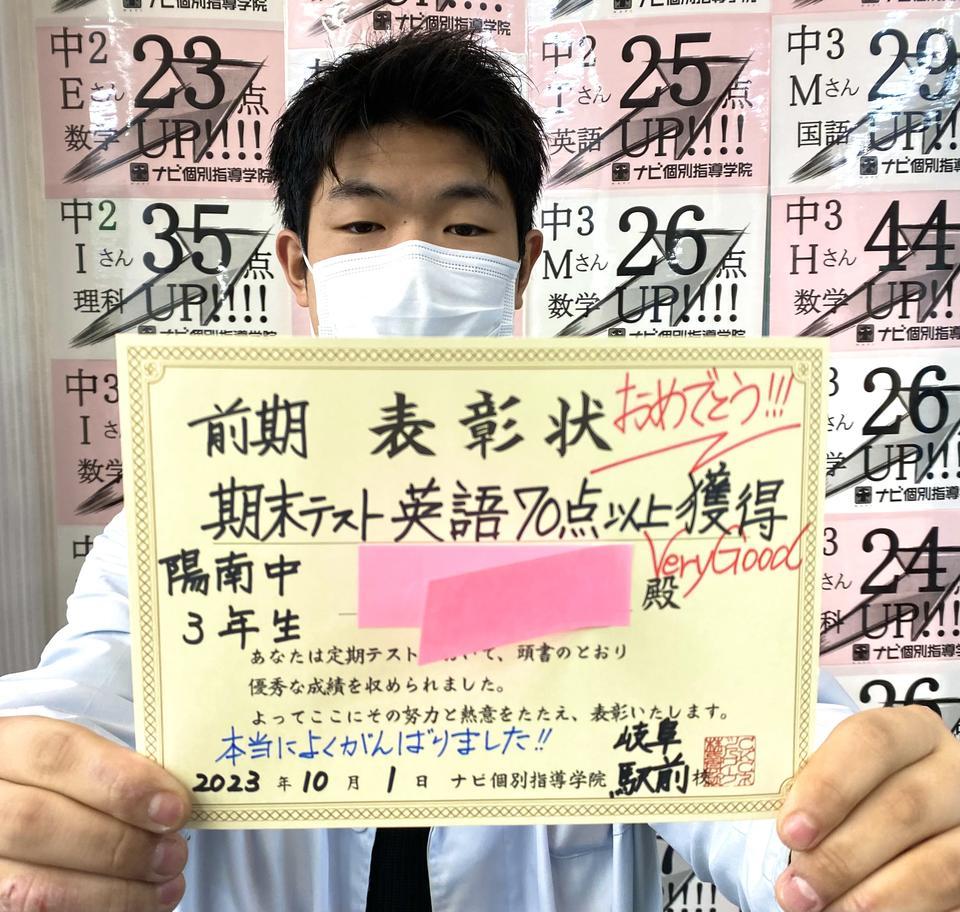 中2
Eさん
数学
23点
UP!!!!
ナビ個別指導学院
中2
さん
英語
25点
UP!!!!
ナビ個別指導学院
中3
Mさん
国語
29
UP!!!!
ナビ個別指導学院
中2
Iさん
理科
35点
UP!!!!
ナビ個別指導学院
中3
Mさん
数学
26点
UP!!!!
ナビ個別指導学院
中3
Hさん
数学
44
UP!!!!
ナビ個別指導学院
中3
I
数学
26
UP!!!
ナビ個別指導学
3
さん
科
24
UP!!!
ナビ個別指導学
26
前期 表彰状
おめでとう!!!
期末テスト英語70点以上獲得
VeryGood
陽南中
3年生
殿
あなたは定期テスト いて、頭書のとおり
優秀な成績を収められました。
よってここにその努力と熱意をたたえ、表彰いたします。
本当によくがんばりました!!
岐阜
2023年10月1日 ナビ個別指導学院 駅前校